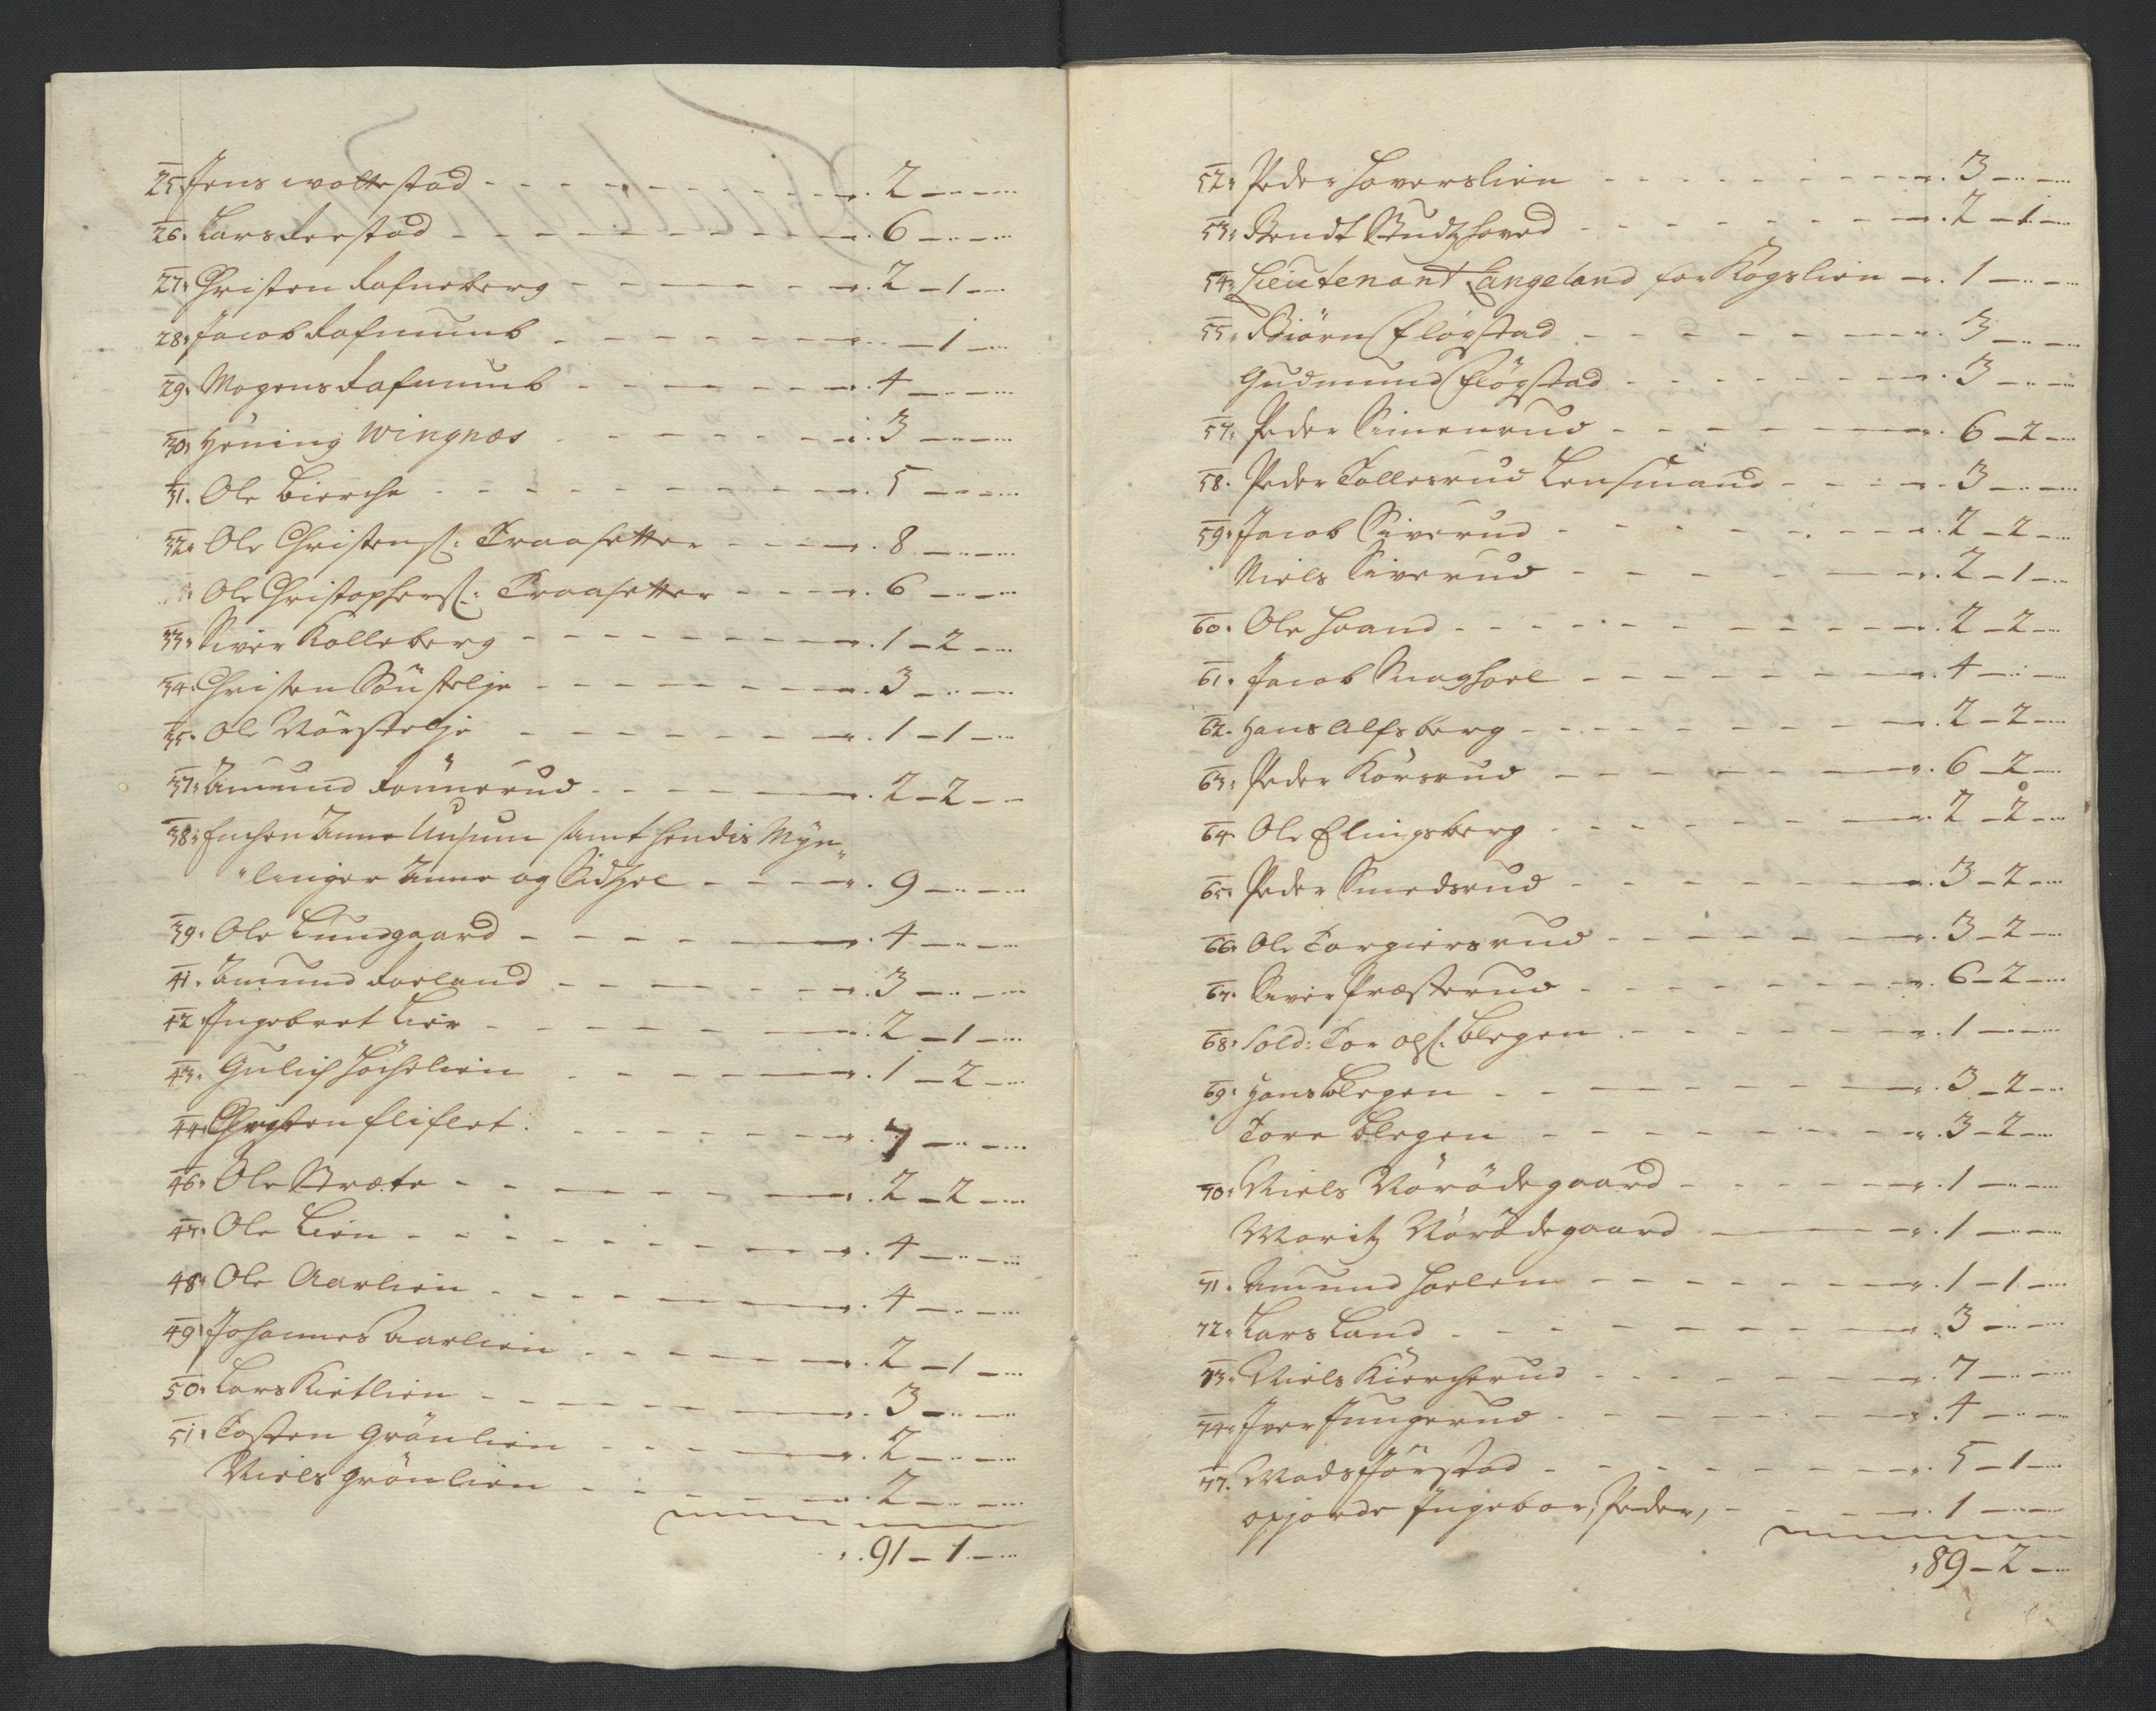 25. Jens wottestad - - - 2 - " - "
26. Lars Rerstad - - - 6 - " - "
27. Christen Rafneberg - - - 2 - 1 - "
28. Jacob Rafnumb - - - " - 1 - "
29. Mogens Rafnumb - - - 4 - " - "
30. Hening Wingnæs - - - 3 - " - "
31. Ole Bierche - - - 5 - " - "
32. Ole Christens: Traasetter - - - 8 - " - "
" Ole Christophers: Traasetter - - - 6 - " - "
33. Siver Kolleberg - - - 1 - 2 - "
34. Christen Sönstelje - - - 3 - " - "
35. Ole Nörstelje - - - 1 - 1 - "
37. Amund Rönnerud - - - 2 - 2 - "
38. Enchen Anne Unsum samt hendis Myn-
"linger Anne og Sidzel - - - 9 - " - "
39. Ole Lundgaard - - - 4 - " - "
41. Amund Forland - - - 3 - " - "
42. Ingebret Lier - - - 2 - 1 - "
43. Gulich Höchelien - - - 1 - 2 - "
44. Christen Fliflet - - - 7 - " - "
46. Ole Bræte - - - 2 - 2 - "
47. Ole Lien - - - 4 - " - "
48. Ole Aarlien - - - 4 - " - "
49. Johannes Aarlien - - - 2 - 1 - "
50. Lars Kietlien - - - 3 - " - "
51. Tosten Grönlien - - - 2 - " - "
Niels Grönlien - - - 2 - " - "
91 - 1 - "
52. Peder Hoverslien - - - 3 - " - "
53. Bendt Studshoved - - - 2 - 1 - "
54. Lieutenant Langeland for Kogslien - 1 - " - "
55. Biörn Flögstad - - - 3 - " - "
Gudmund Flögstad - - - 3 - " - "
57. Peder Simenrud - - - 6 - 2 - "
58. Peder Tollesrud Lensmand - - - 3 - " - "
59. Jacob Siverud - - - 2 - 2 - "
Niels Siverud - - - 2 - 1 - "
60. Ole Haand - - - 2 - 2 - "
61. Jacob Smaghoel - - - 4 - " - "
62. Hans Alfsberg - - - 2 - 2 - "
63. Peder Korsrud - - - 6 - 2 - "
64. Ole Elingsberg - - - 2 - 2 - "
65. Peder Smedsrud - - - 3 - 2 - "
66. Ole Torgiersrud - - - 3 - 2 - "
67. Siver Præsterud - - - 6 - 2 - "
68. Sold: Tor Ols: Blegen - - - 1 - " - "
69. Hans Blegen - - - 3 - 2 - "
Tore Blegen - - - 3 - 2 - "
70. Niels Nörödegaard - - - 1 - " - "
Moritz Nörödegaard - - - 1 - " - "
71. Amund Hoelem - - - 1 - 1 - "
72. Lars Land - - - 3 - " - "
73. Niels Kiercherud - - - 7 - " - "
74. Iver Jungerud - - - 4 - " - "
77. Mads Jörstad - - - 5 - 1 - "
opjorde Ingebor, Peder, - - - 1 - " - "
89 - 2 - "